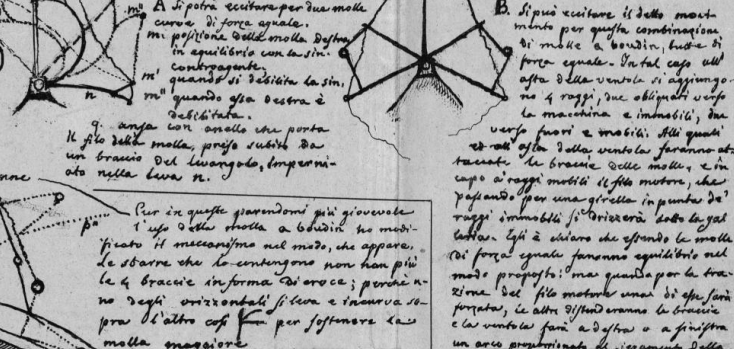 m°
A Si potrà eccitare per due molle
curve di forza eguale.
m. posizione della molla destra
in equilibrio con la sin.
contraagente.
m' quando si debilita la sin.
m" quando essa destra è
debilitata.
n
q. ansa con anello che porta
il filo della molla, preso subito da
un braccio del livangolo, imperni-
ato nella leva n.
p"
Pur in queste parendomi più giovevole
l'uso della molla a boudin ho modi-
ficato il meccanismo nel modo, che appare.
Le sbarre che lo contengono non han più
le 4 braccie in forma di croce; perchè u-
no degli orizzontali si leva e incurva so-
pra l'altro così per sostenere la
molla maggiore
B. Si può eccitare il detto movi-
mento per questa combinazione
di molle a boudin, tutte di
forza eguale. In tal caso all'
asta della ventola si aggiungo-
no 4 raggi, due obliquati verso
la macchina e immobili, due
verso fuori e mobili. Alli quali
ed all' asta della ventola faranno at-
taccate le braccie delle molle, e in
capo a' raggi mobili il filo motore, che
passando per una girella in punta de'
raggi immobili si drizzerà sotto la gal
leria. Egli è chiaro che essendo le molle
di forza eguale faranno equilibrio nel
modo proposto: ma quando per la tra-
zione del filo motore una di esse sarà
forzata, le altre distenderanno le braccie
e la ventola farà a destra o a sinistra
un arco proporzionato al